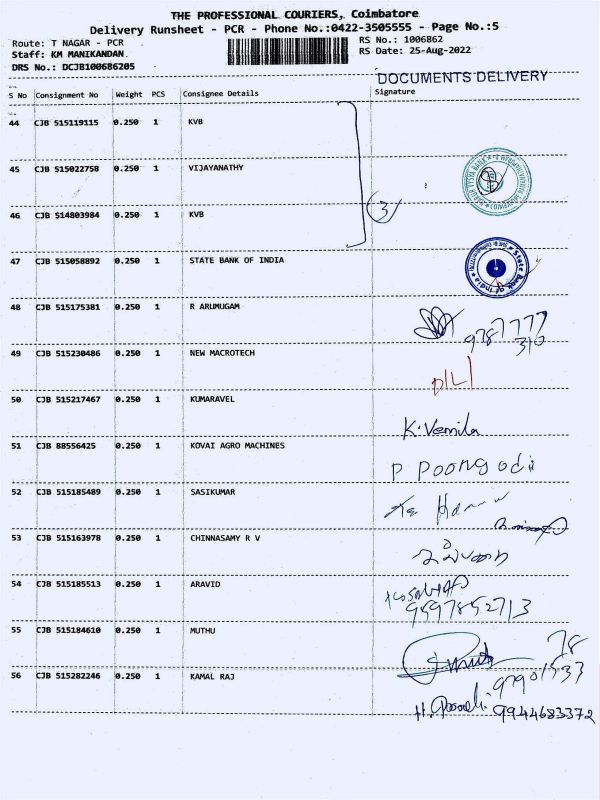 THE PROFESSIONAL COURIERS, Coimbatore
Delivery Runsheet - PCR - Phone No.:0422-3505555 - Page No.:5
Route: T NAGAR - PCR
RS No.: 1006862
Staff: KM MANIKANDAN
RS Date: 25-Aug-2022
DRS No.: DCJB100686205
DOCUMENTS DELIVERY
S No Consignment No Weight PCS Consignee Details Signature
44 CJB 515119115 0.250 1 KVB
45 CJB 515022758 0.250 1 VIJAYANATHY
46 CJB 514803984 0.250 1 KVB
3
47 CJB 515058892 0.250 1 STATE BANK OF INDIA
State Bank of India
48 CJB 515175381 0.250 1 R ARUMUGAM
9787777
310
49 CJB 515230486 0.250 1 NEW MACROTECH
50 CJB 515217467 0.250 1 KUMARAVEL
K. Vemila
51 CJB 88556425 0.250 1 KOVAI AGRO MACHINES
P Poongodi
52 CJB 515185489 0.250 1 SASIKUMAR
53 CJB 515163978 0.250 1 CHINNASAMY R V
54 CJB 515185513 0.250 1 ARAVID
9597852713
55 CJB 515184610 0.250 1 MUTHU
78
56 CJB 515282246 0.250 1 KAMAL RAJ
9944683372